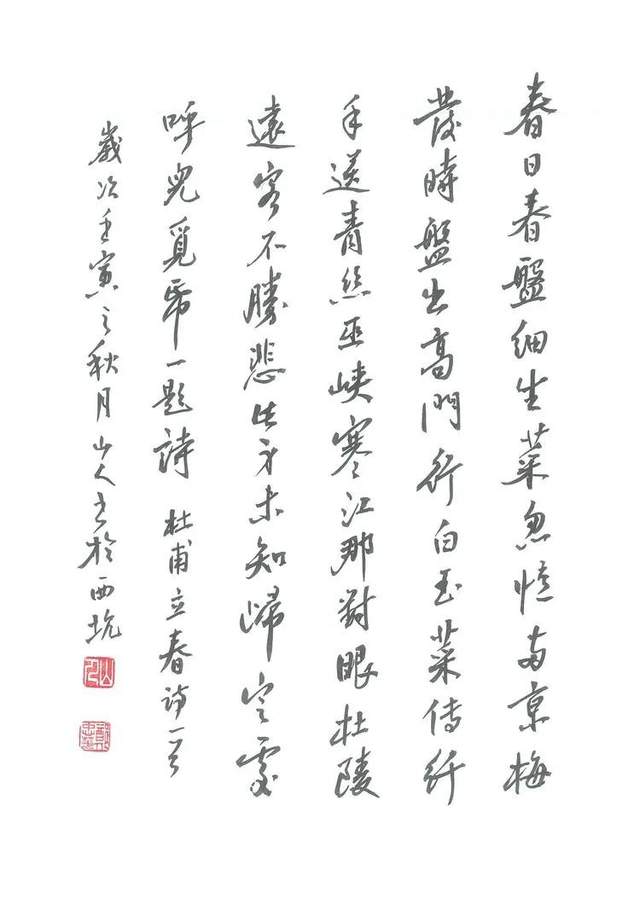 春日春盤細生菜忽憶兩京梅
發時盤出高門行白玉菜傳纤
手送青絲巫峽寒江那對眼杜陵
遠客不勝悲此身未知歸定處
呼兒覓帋一題詩 杜甫立春诗一首
歲次壬寅之秋月山人書於西坑
山人